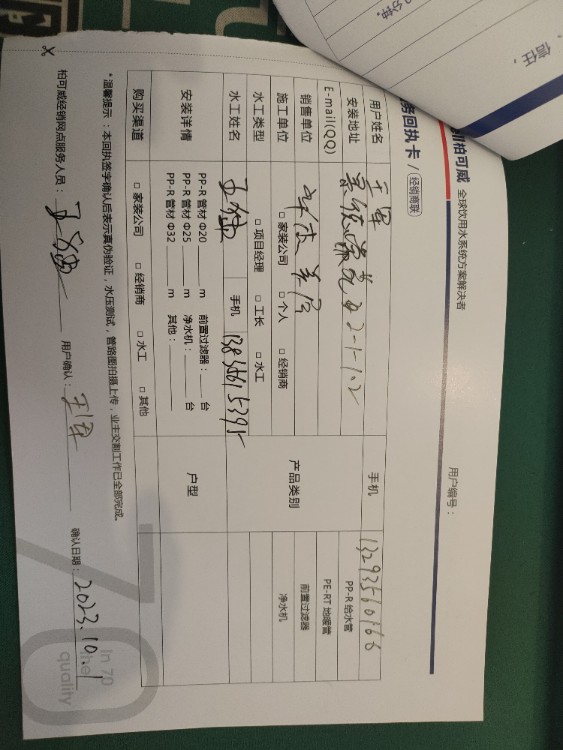 柏可威 全球饮用水系统方案解决者
务回执卡 / 经销商联
用户编号：
用户姓名 王军 手机 13293510166
安装地址 2-1-102
E-mail(QQ)
销售单位
施工单位 □ 家装公司 □ 个人 □ 经销商
水工类型 □ 项目经理 □ 工长 □ 水工
水工姓名 手机
产品类别
PP-R 给水管
PE-RT 地暖管
前置过滤器
净水机
安装详情
PP-R 管材 Φ20 ____ m 前置过滤器：____ 台
PP-R 管材 Φ25 ____ m 净水机：____ 台
PP-R 管材 Φ32 ____ m 其他：____
户型
购买渠道 □ 家装公司 □ 经销商 □ 水工 □ 其他
*温馨提示：本回执签字确认后表示真伪验证，水压测试，管路图拍摄上传，业主交割工作已全部完成。
柏可威经销网点服务人员： 用户确认：王军 确认日期：2023.10.1
70
In 70
the
quality
信任，
分钟，